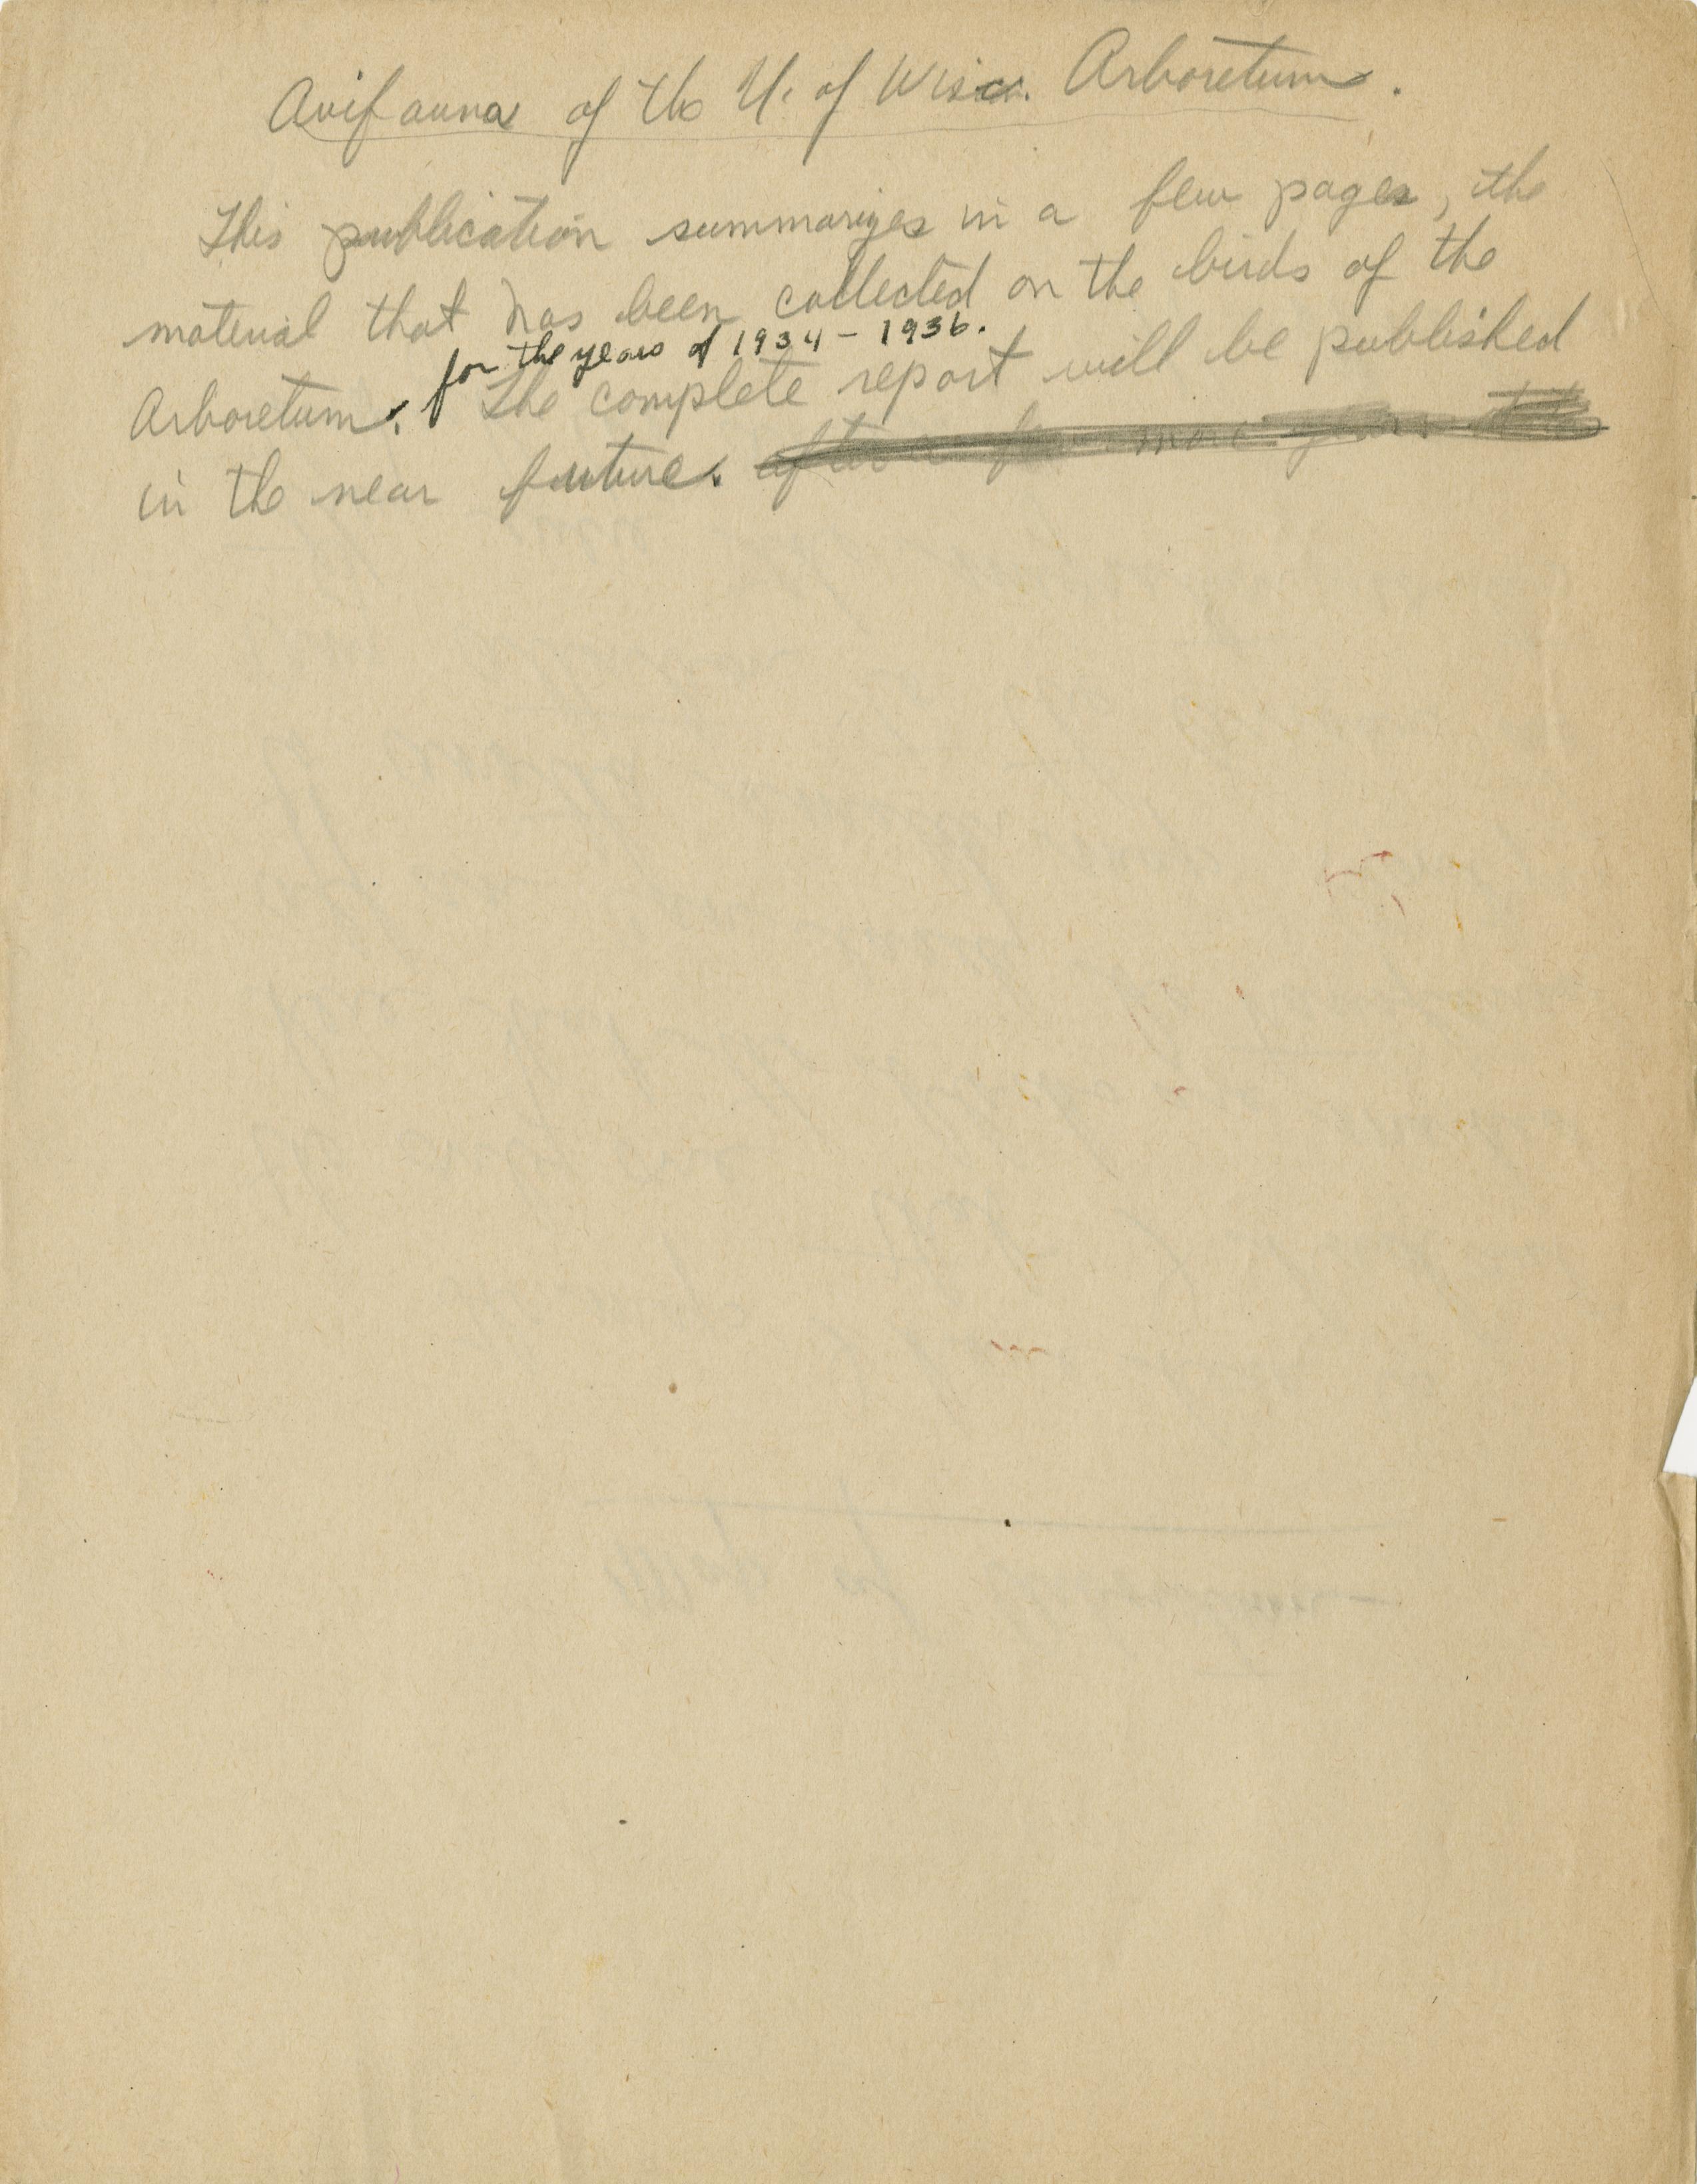 Avifauna of the U. of Wisc. Arboretum.
This publication summarizes in a few pages, the
material that has been collected on the birds of the
for the years of 1934 - 1936.
Arboretum. The complete report will be published
in the near future. after a few more years